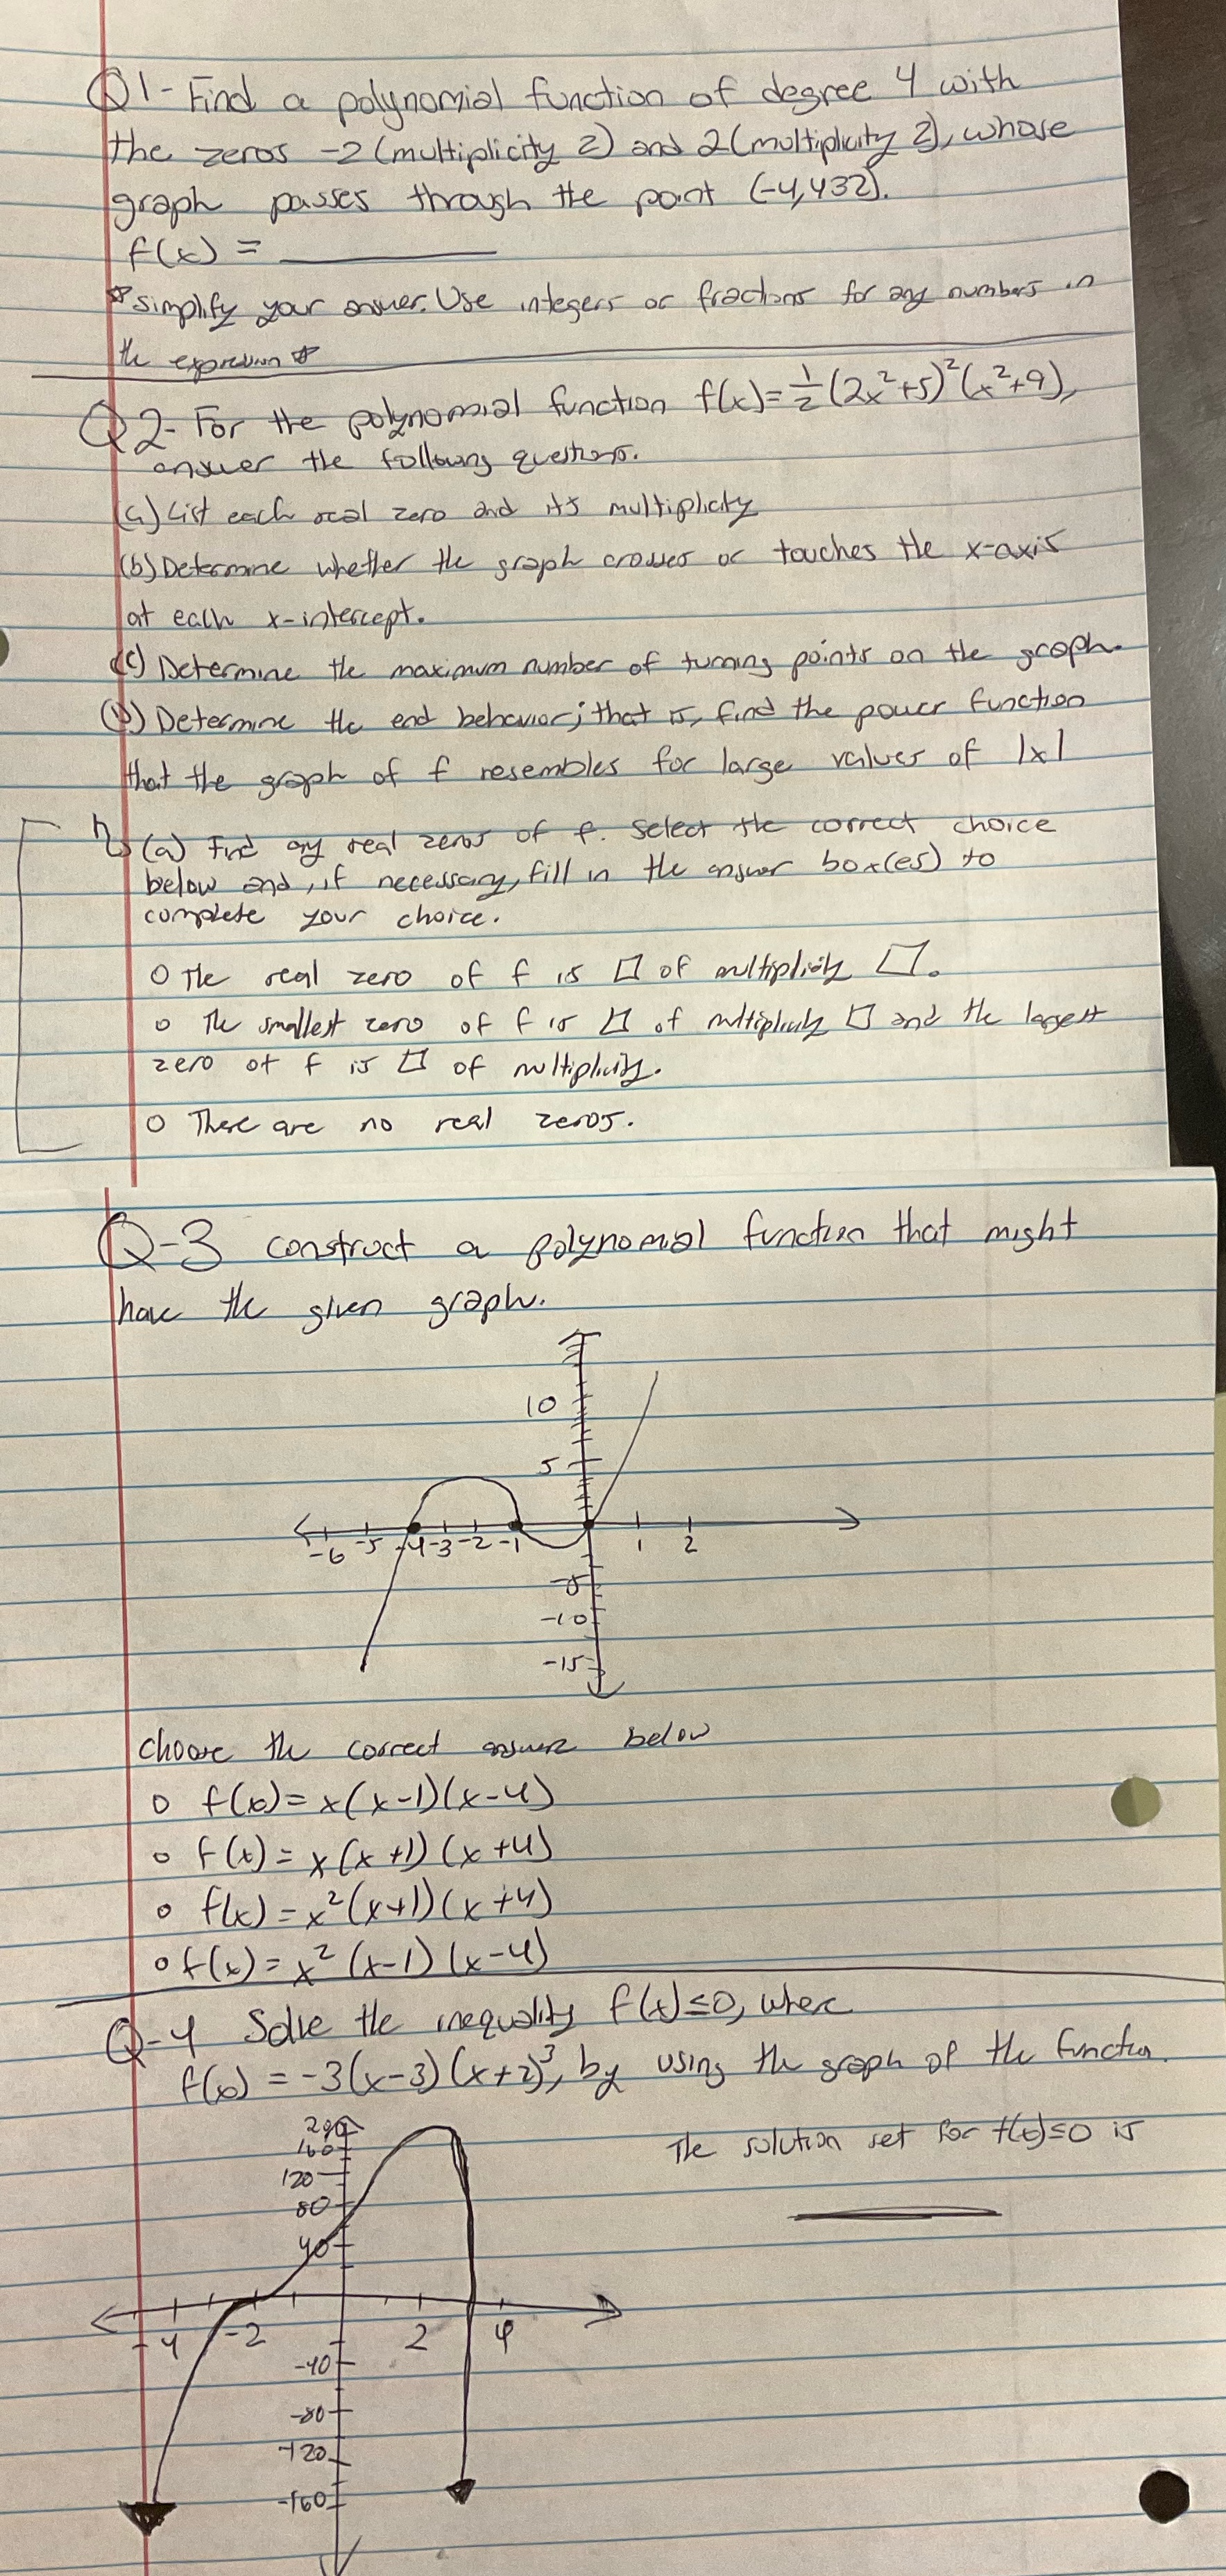 Q1- Find a polynomial function of degree 4 with
the zeros -2 (multiplicity 2) and 2 (multiplicity 2), whose
graph passes through the point (-4,432).
f(x) = ________
*simplify your answer. Use integers or fractions for any numbers in
the expression*
Q2- For the polynomial function f(x)=1/2(2x²+5)²(x²+9),
answer the following questions.
(a) List each real zero and its multiplicity
(b) Determine whether the graph crosses or touches the x-axis
at each x-intercept.
(c) Determine the maximum number of turning points on the graph.
(D) Determine the end behavior; that is, find the power function
that the graph of f resembles for large values of |x|
(a) Find any real zeros of f. Select the correct choice
below and, if necessary, fill in the answer box(es) to
complete your choice.
O The real zero of f is □ of multiplicity □.
O The smallest zero of f is □ of multiplicity □ and the largest
zero of f is □ of multiplicity.
O There are no real zeros.
Q-3 construct a polynomial function that might
have the given graph.
10
5
-6 -5 -4 -3 -2 -1 1 2
-5
-10
-15
choose the correct answer below
O f(x) = x(x-1)(x-4)
O f(x) = x(x+1)(x+4)
O f(x) = x²(x+1)(x+4)
O f(x) = x²(x-1)(x-4)
Q-4 Solve the inequality f(x)≤0, where
f(x) = -3(x-3)(x+2)³, by using the graph of the function.
The solution set for f(x)≤0 is
________
200
160
120
80
40
-4 -2 2 4
-40
-80
-120
-160